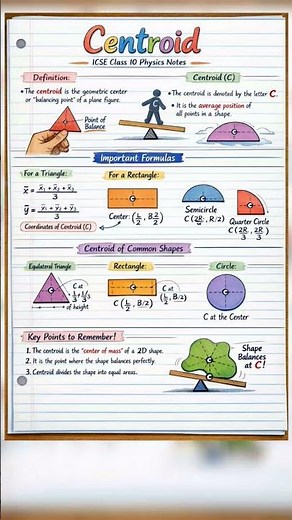 Centroid
ICSE Class 10 Physics Notes
Definition:
• The centroid is the geometric center
or "balancing point" of a plane figure.
Point of
Balance
Centroid (C)
• The centroid is denoted by the letter C.
• It is the average position of
all points in a shape.
C
Important Formulas
For a Triangle:
x̄ = x₁ + x₂ + x₃ / 3
ȳ = y₁ + y₂ + y₃ / 3
Coordinates of Centroid (C)
For a Rectangle:
C
Center: (L/2, B.2/2)
C
Semicircle
C (2R, R/2)
C
Quarter Circle
C (2R/3, 2R/3)
Centroid of Common Shapes
Equilateral Triangle
C
C at
of height
Rectangle:
C
C at
(L/2, B/2)
C (L/2, B/2)
Circle:
C
C at the Center
Key Points to Remember!
1. The centroid is the "center of mass" of a 2D shape.
2. It is the point where the shape balances perfectly.
3. Centroid divides the shape into equal areas.
C
Shape
Balances
at C!